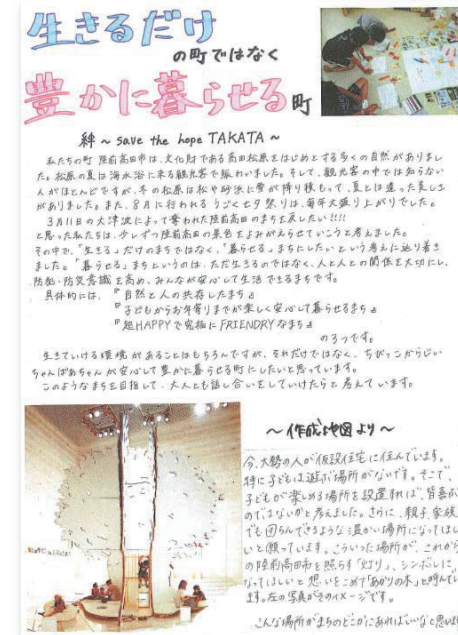 生きるだけ
の町ではなく
豊かに暮らせる町
絆 ~ save the hope TAKATA ~
私たちの町 陸前高田市は、文化財である高田松原をはじめとする多くの自然がありまし
た。松原の夏は海水浴に来る観光客で賑わいました。そして、観光客の中では知らない
人がほとんどですが、冬の松原は松や砂浜に雪が降り積もって、夏とは違った美しさ
がありました。また、8月に行われるうごく七夕祭りは、毎年大盛り上がりでした。
3月11日の大津波によって奪われた陸前高田のまちを戻したい!!!!
と思った私たちは、少しずつ陸前高田の景色をよみがえらせていこうと考えました。
その中で、「生きる」だけのまちではなく、「暮らせる」まちにしたいという考えに辿り着き
ました。「暮らせる」まちというのは、ただ生きるのではなく、人と人との関係を大切にし、
防犯・防災意識を高め、みんなが安心して生活できるまちです。
具体的には、『自然と人の共存したまち』
『子どもからお年寄りまでが楽しく安心して暮らせるまち』
『超HAPPYで究極にFRIENDRYなまち』
の3つです。
生きていける環境があることはもちろんですが、それだけではなく、ちびっこからじい
ちゃんばあちゃんが安心して豊かに暮らせる町にしたいと思っています。
このようなまちを目指して、大人とも話し合いをしていけたらと考えています。
~作成地図より~
今、大勢の人が仮設住宅に住んでいます。
特に子どもは遊ぶ場所がないです。そこで、
子どもが楽しめる場所を設置すれば、皆喜ぶ
のではないかと考えました。さらに、親子、家族
でも団らんできるような温かい場所になってほし
いと願っています。こういった場所が、これから
の陸前高田市を照らす「灯り」、シンボルに
なってほしいと思いをこめて「あかりの木」と呼んでい
ます。左の写真がそのイメージです。
こんな場所がまちのどこかにあればいいなと思いま